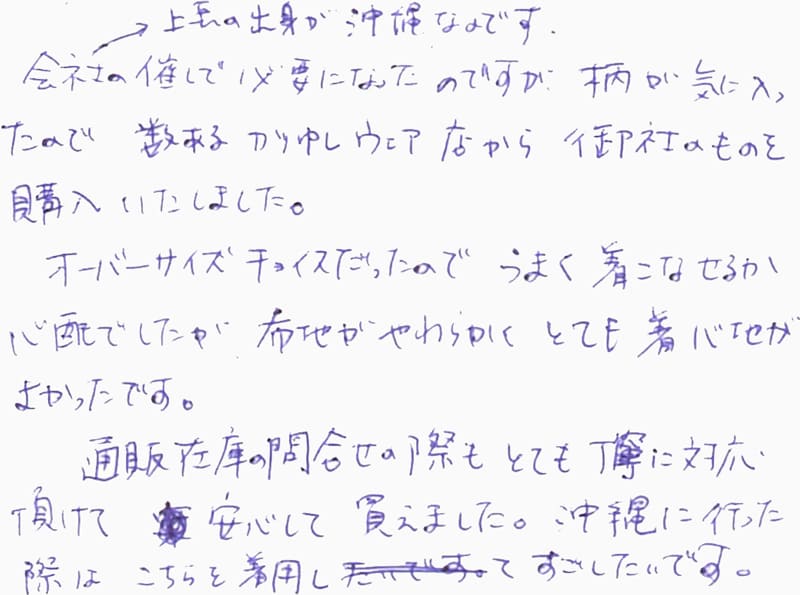 上長の出身が沖縄なのです.
会社の催しで必要になったのですが 柄が気に入っ
たので 数あるかりゆしウェア店から 御社のものを
購入いたしました。
オーバーサイズチョイスだったので うまく着こなせるか
心配でしたが 布地がやわらかく とても着心地が
よかったです。
通販在庫の問合せの際も とても丁寧に対応
頂けて 安心して買えました。沖縄に行った
際は こちらを着用したいです。てすごしたいです。